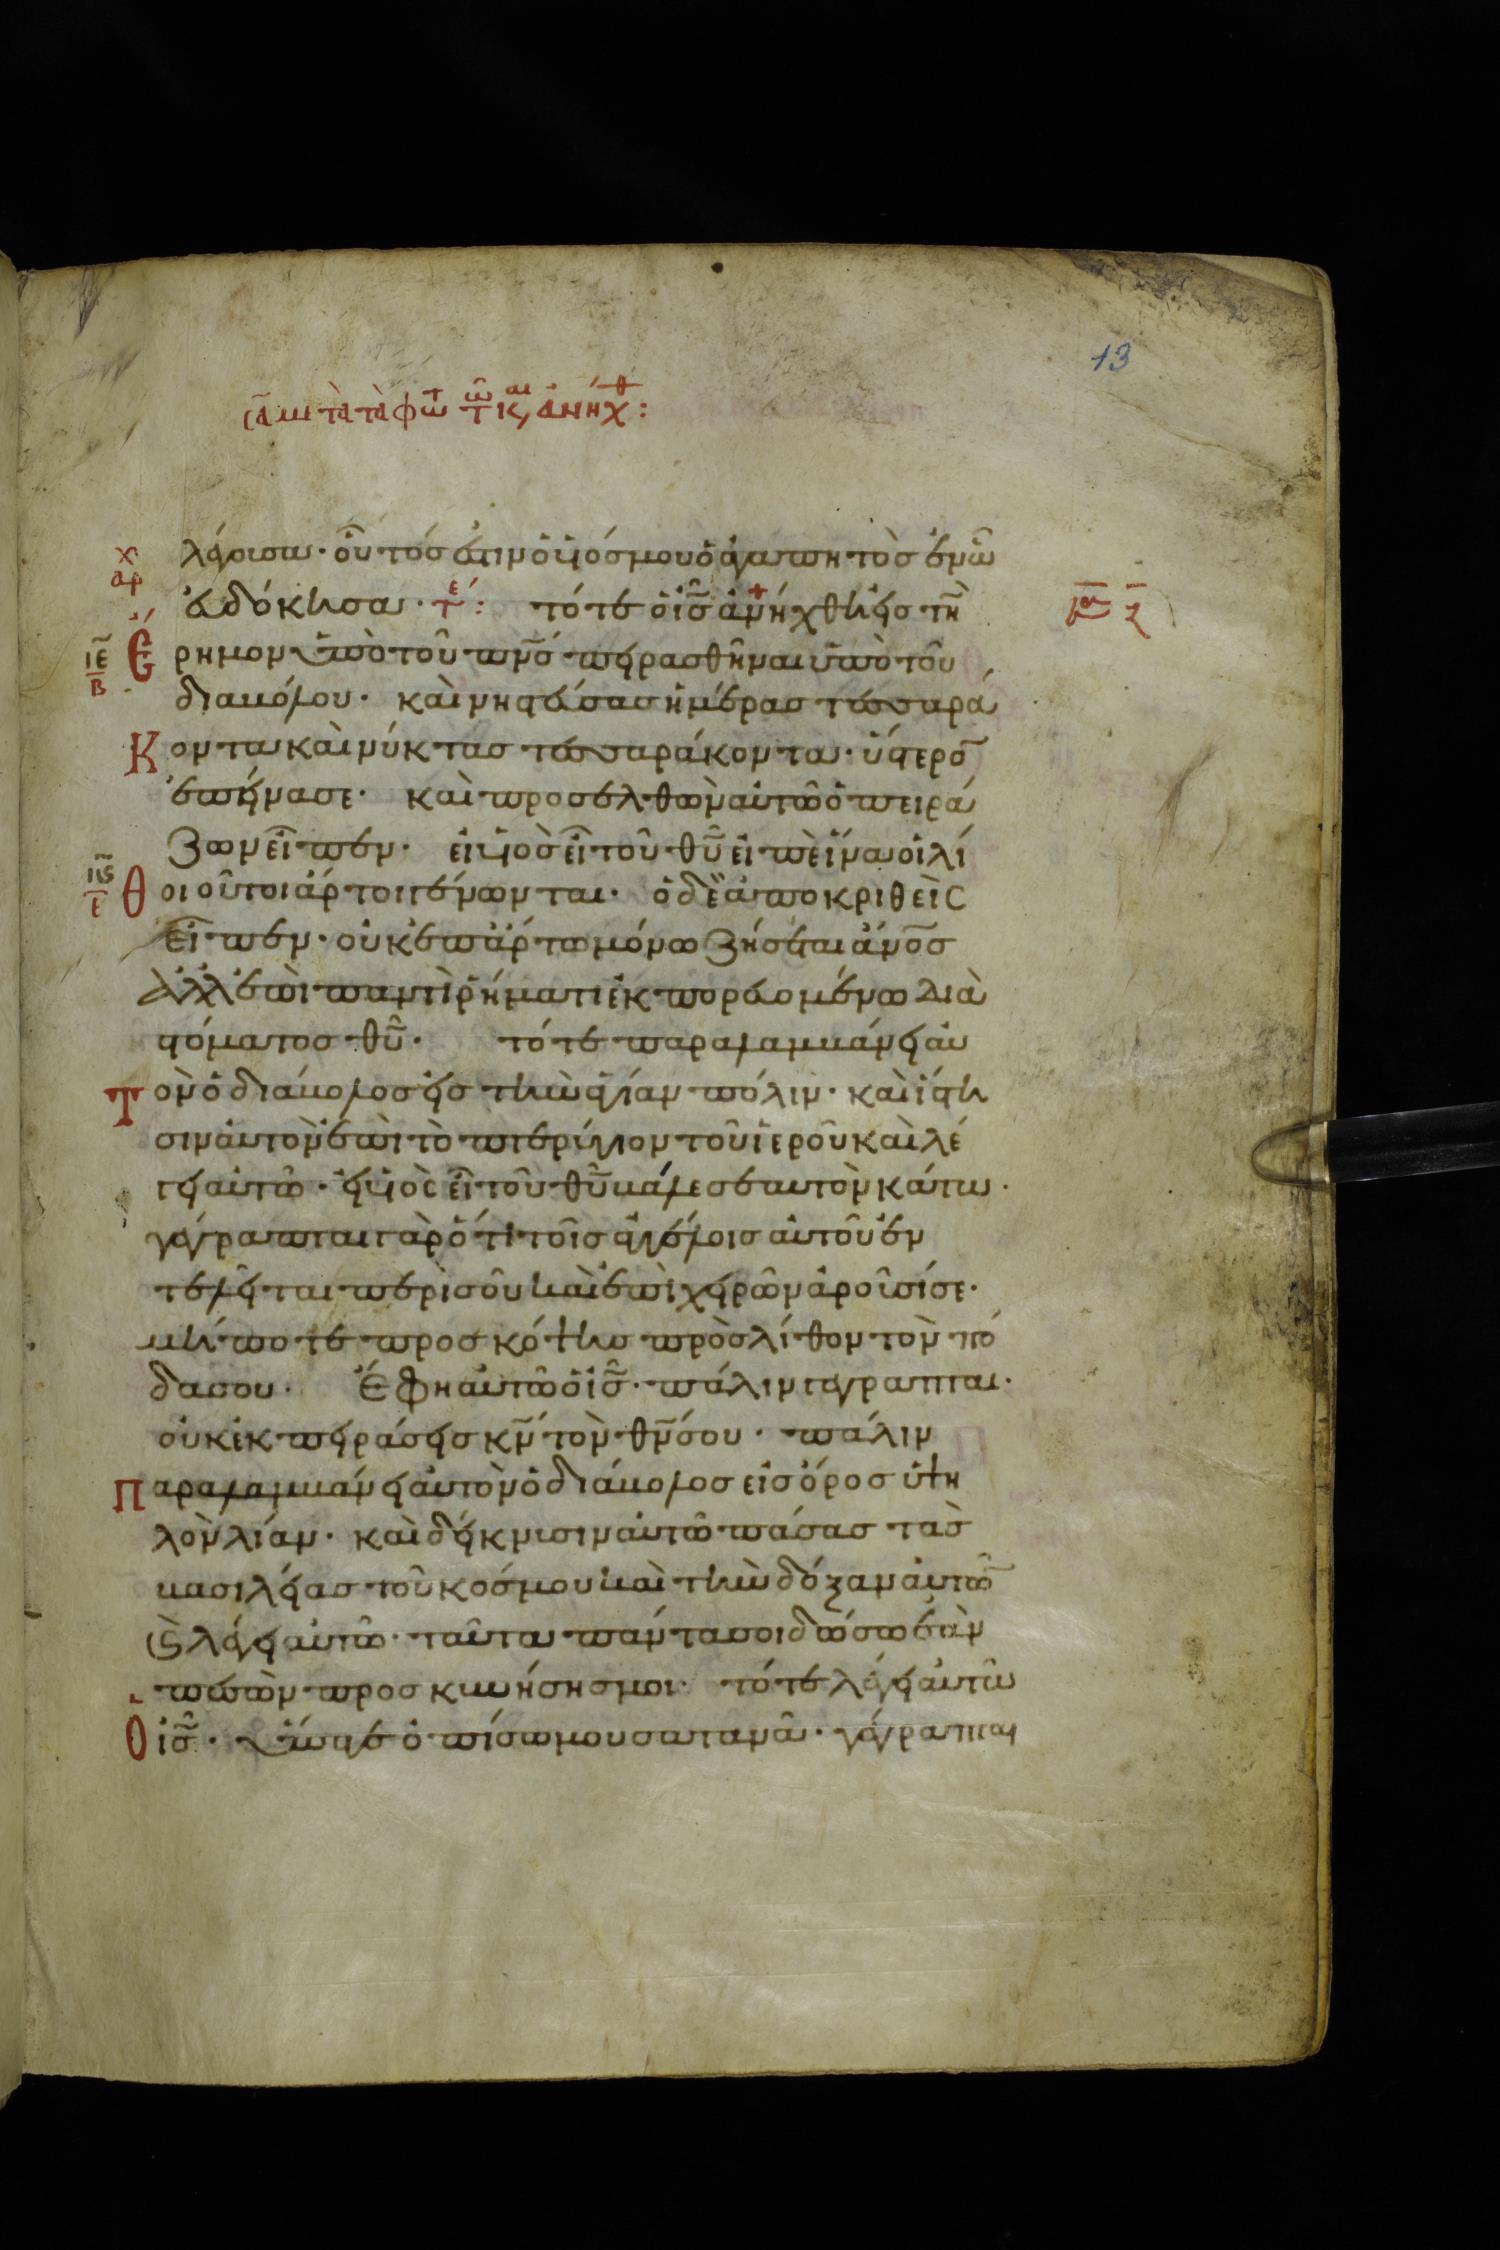 13
λέγουσα· οὗτος ἐστιν ὁ υἱός μου ὁ ἀγαπητὸς ἐν ὧ
εὐδόκησα· τε: τότε ὁ ις ἀνήχθη εἰς τὴν
Ερημον ὑπὸ τοῦ πνς πειρασθῆναι ὑπὸ τοῦ
διαβόλου· καὶ νηστεύσας ἡμέρας τεσσαρά
Κοντα καὶ νύκτας τεσσαράκοντα· ὕστερον
ἐπείνασε· καὶ προσελθὼν αὐτῶ ὁ πειρά
ζων εἶπεν· εἰ υἱὸς εἶ τοῦ θυ εἰπὲ ἵνα οἱ λί
Θοι οὗτοι ἄρτοι γένωνται· ὁ δὲ ἀποκριθεὶς
εἶπεν· οὐκ ἐπ ἄρτω μόνω ζήσεται ἀνος
ἀλλ ἐπὶ παντὶ ῥήματι ἐκπορευομένω διὰ
στόματος θυ· τότε παραλαμβάνει αὐ
Τον ὁ διάβολος εἰς τὴν ἁγίαν πόλιν· καὶ ἵστη
σιν αὐτὸν ἐπὶ τὸ πτερύγιον τοῦ ἱεροῦ καὶ λέ
γει αὐτῶ· εἰ υἱὸς εἶ τοῦ θυ βάλε σεαυτὸν κάτω·
γέγραπται γὰρ ὅτι τοῖς ἀγγέλοις αὐτοῦ ἐν
τελεῖται περὶ σοῦ καὶ ἐπὶ χειρῶν ἀροῦσί σε·
μήποτε προσκόψης πρὸς λίθον τὸν πό
δα σου· Ἔφη αὐτῶ ὁ ις· πάλιν γέγραπται·
οὐκ ἐκπειράσεις κν τὸν θν σου· πάλιν
Παραλαμβάνει αὐτὸν ὁ διάβολος εἰς ὄρος ὑψη
λὸν λίαν· καὶ δείκνυσιν αὐτῶ πάσας τὰς
βασιλείας τοῦ κόσμου καὶ τὴν δόξαν αὐτῶν
ϗ λέγει αὐτῶ· ταῦτα πάντα σοι δώσω ἐὰν
πεσὼν προσκυνήσης μοι· τότε λέγει αὐτῶ
Ὁ ις· ὕπαγε ὀπίσω μου σατανᾶ· γέγραπται